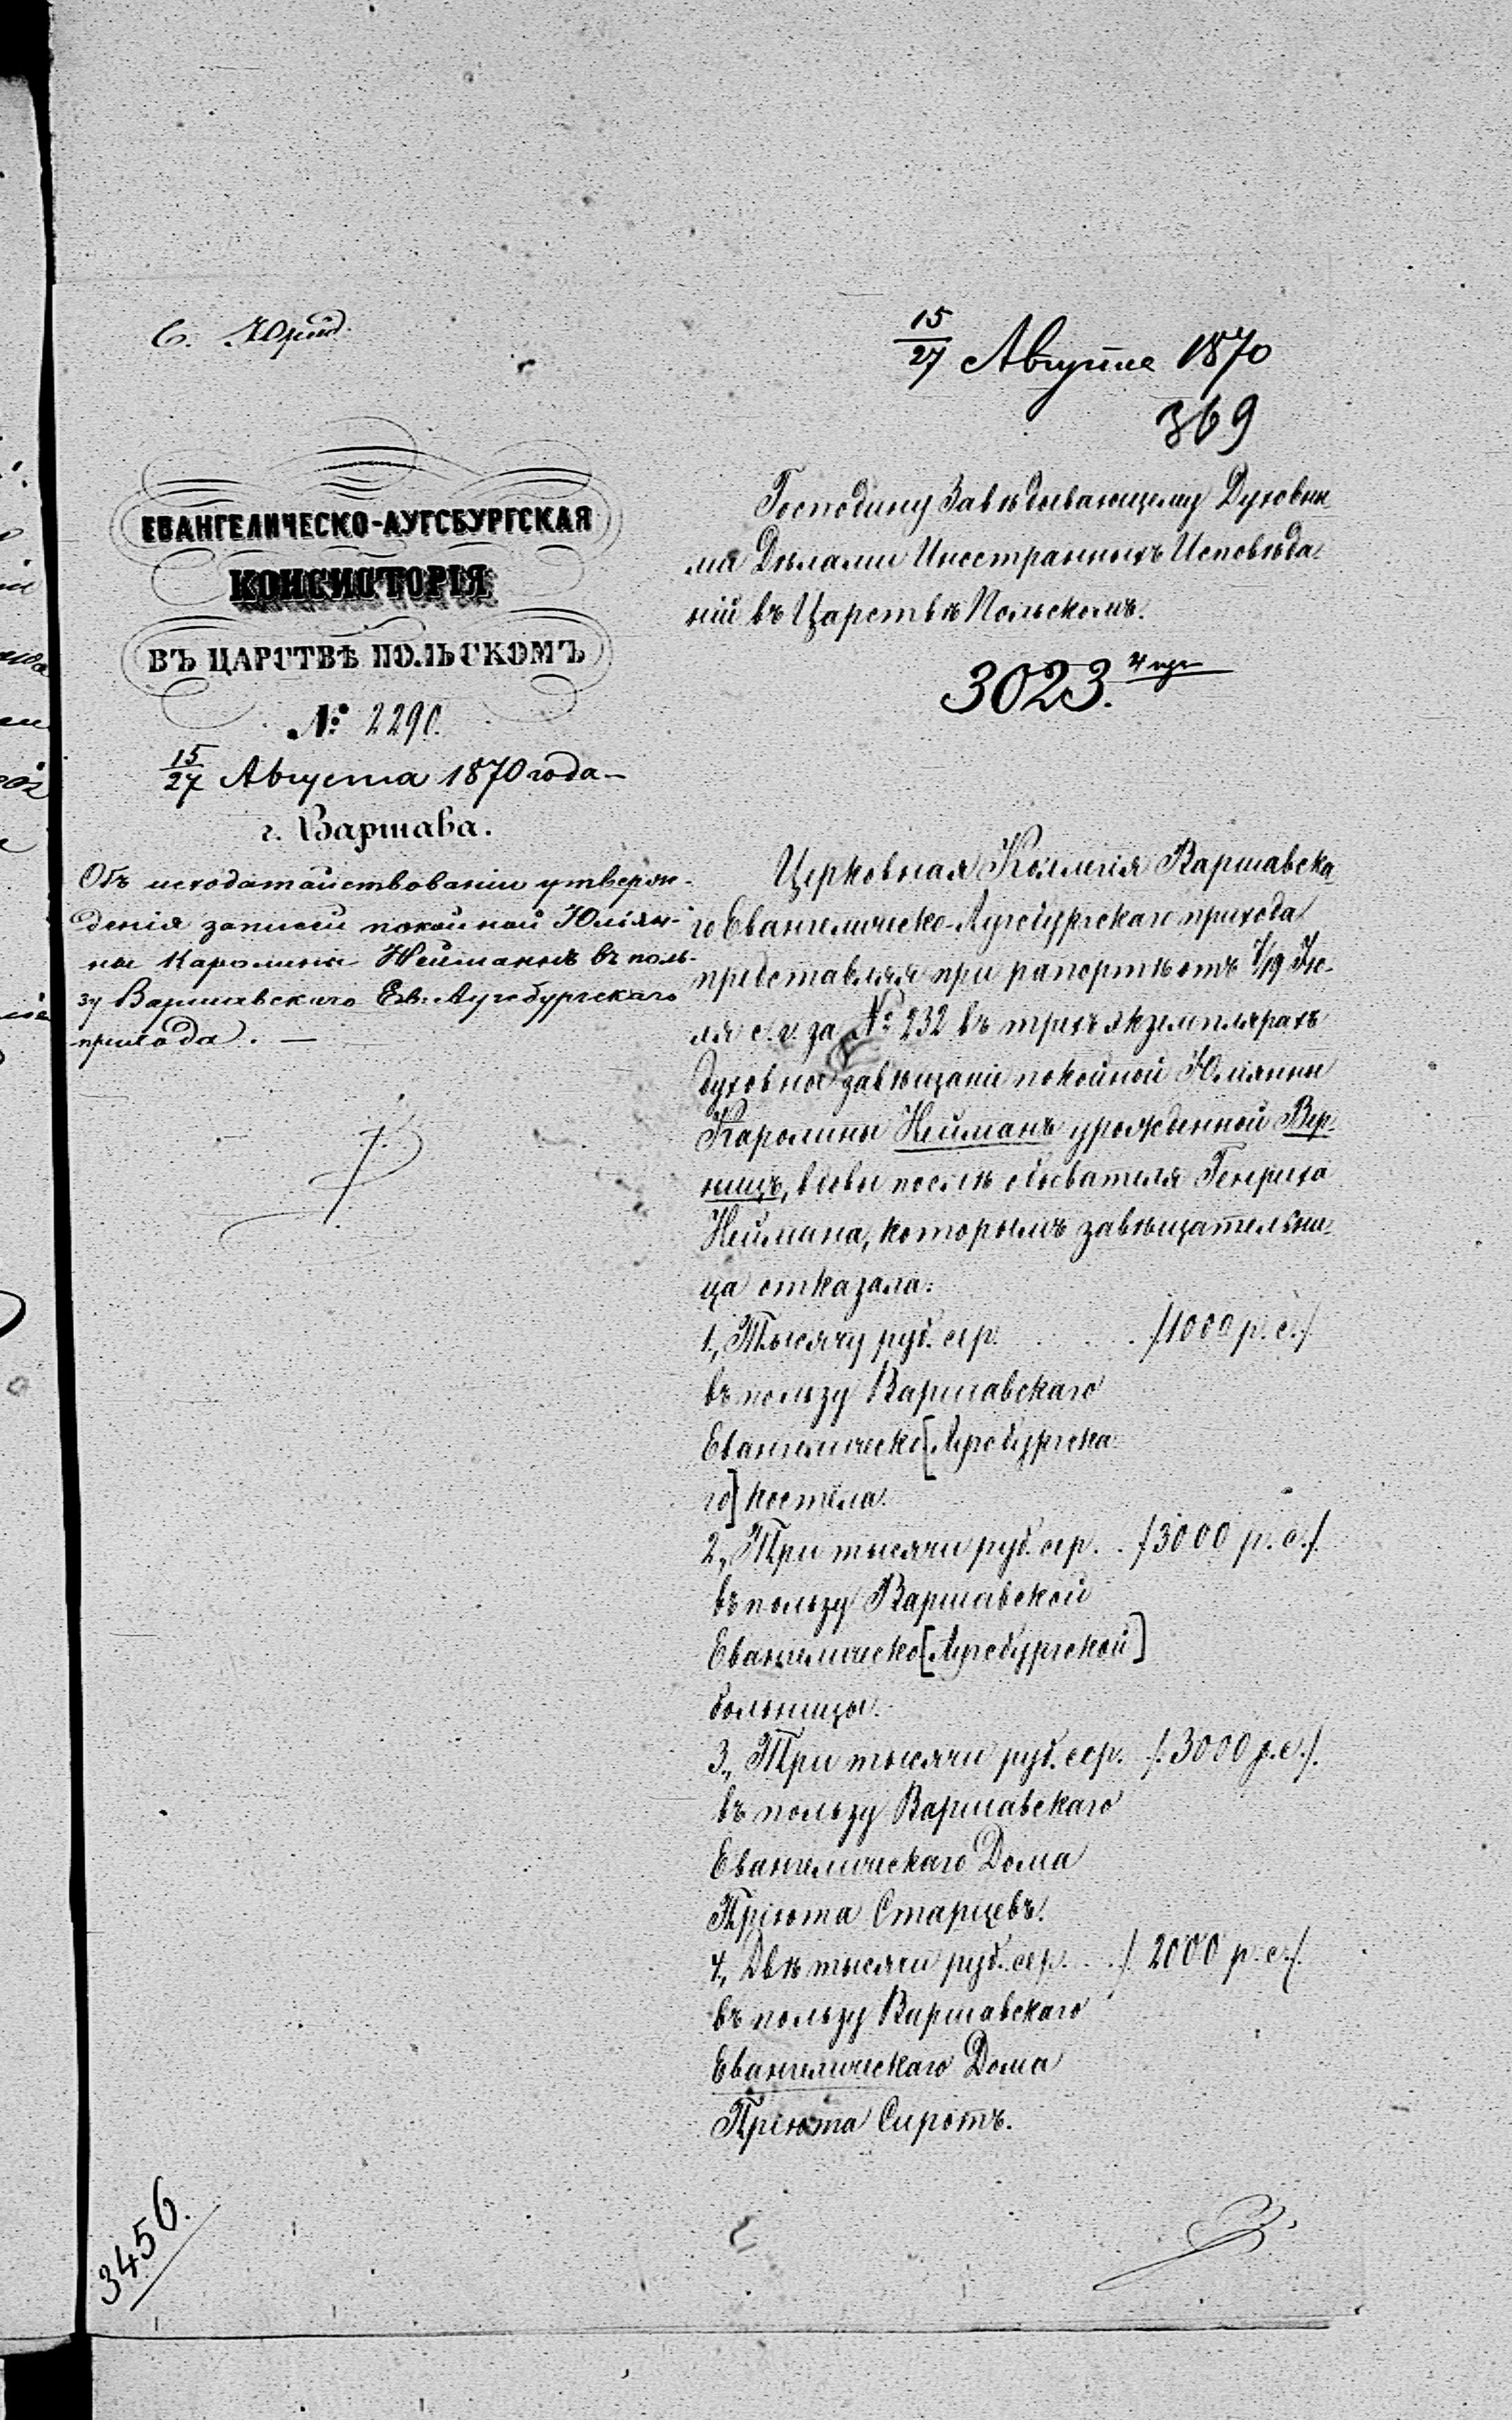 С. Юрид.
15/27 Августа 1870
369
ЕВАНГЕЛИЧЕСКО-АУГСБУРГСКАЯ
КОНСИСТОРІЯ
ВЪ ЦАРСТВѢ ПОЛЬСКОМЪ
№: 2290.
15/27 Августа 1870 года –
г. Варшава.
Объ исходатайствованіи утверж-
денія записей покойной Юліан-
ны Каролины Нейманъ въ поль-
зу Варшавскаго Ев: Аугсбургскаго
прихода. —
Господину Завѣдывающему Духовны
ми Дѣлами Иностранныхъ Исповѣда-
ній въ Царствѣ Польскомъ.
3023.
Церковная Коллегія Варшавска-
го Евангелическо-Аугсбургскаго прихода
представляя при рапортѣ отъ 7/19 Ію-
ля с. г. за №: 232 въ трехъ экземплярахъ
духовное завѣщаніе покойной Юліанны
Каролины Нейманъ урожденной Вер-
ницъ, вдовы послѣ обывателя Генриха
Неймана, которымъ завѣщательни-
ца отказала:
1., Тысячу руб. сер. . . . . /1000 р. с./
въ пользу Варшавскаго
Евангелическо[Аугсбургска-
го] костела.
2., Три тысячи руб. сер. . /3000 р. с./.
въ пользу Варшавской
Евангелическо[Аугсбургской]
больницы.
3., Три тысячи руб. сер. /.3000 р. с./.
въ пользу Варшавскаго
Евангелическаго Дома
Пріюта Старцевъ.
4., Двѣ тысячи руб. сер. . ./. 2000 р. с./.
въ пользу Варшавскаго
Евангелическаго Дома
Пріюта Сиротъ.
3456.